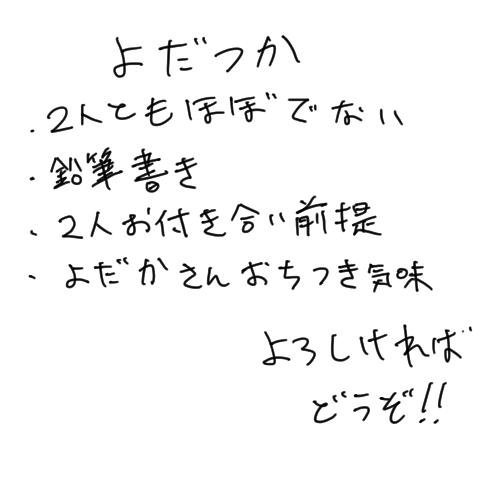 よだつか
・2人ともほぼでない
・鉛筆書き
・2人お付き合い前提
・よだかさんおちつき気味
よろしければ
どうぞ!!